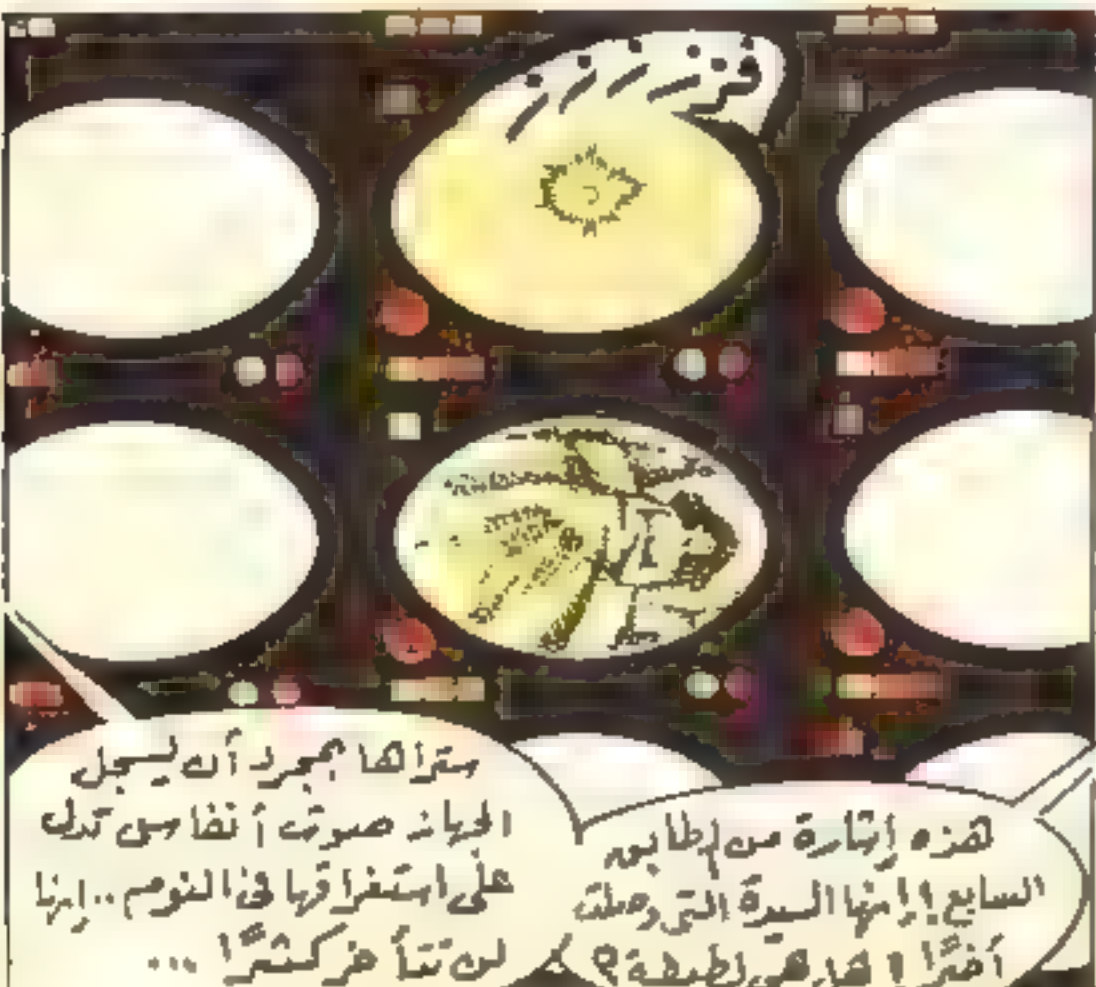 هذه إشارة من الطابق
السابع! إنها السيدة التى وصلت
أخيرًا! هل هى لطيفة؟
ستراها بمجرد أن يسجل
الجهاز صوت أنفاس تدل
على استغراقها فى النوم.. إنها
لن تتأخر كثيرًا ...